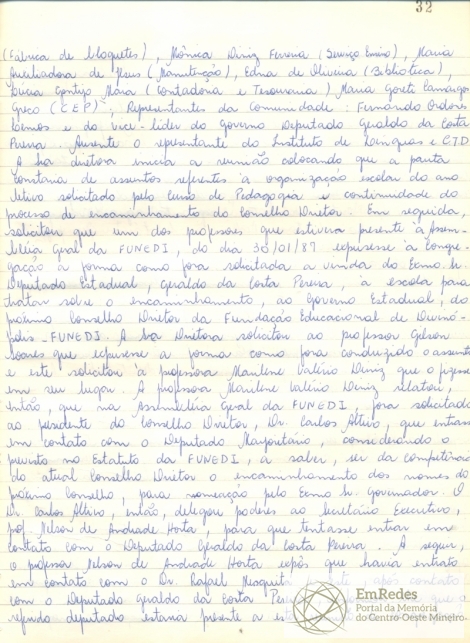 32
(Fábrica de bloquetes), Mônica Diniz Ferreira (Serviço Ensino), Maria
Auxiliadora de Jesus (Manutenção), Edna de Oliveira (Biblioteca),
Lúcia Gontijo Maia (Contadoria e Tesouraria) Maria Goreti Camargos
Greco (CEP), Representantes da Comunidade: Fernando
Lemos e do vice-líder do Governo Deputado Geraldo da Costa
Pereira. Ausente o representante do Instituto de Línguas e CTD.
A Sra diretora inicia a reunião colocando que a pauta
constaria de assuntos referentes à organização escolar do ano
letivo solicitado pelo curso de Pedagogia e continuidade do
processo de encaminhamento do Conselho Diretor. Em seguida,
solicitou que um dos professores que estivera presente à Assem-
bléia Geral da FUNEDI, do dia 30/01/87 expusesse à Congre-
gação a forma como fora solicitada a vinda do Exmo. Sr.
Deputado Estadual, Geraldo da Costa Pereira, à escola para
tratar sobre o encaminhamento, ao Governo Estadual, do
próximo Conselho Diretor da Fundação Educacional de Divinó-
polis - FUNEDI. A Sra Diretora solicitou ao professor Gilson
Soares que expusesse a forma como fora conduzido o assunto
e este solicitou à professora Marilene Valério Diniz que o fizesse
em seu lugar. A professora Marilene Valério Diniz relatou,
então, que na Assembléia Geral da FUNEDI, fora solicitado
ao presidente do Conselho Diretor, Dr. Carlos Altivo, que entrasse
em contato com o Deputado Majoritário, considerando o
previsto no Estatuto da FUNEDI, a saber, ser da competência
do atual Conselho Diretor o encaminhamento dos nomes do
próximo Conselho, para nomeação pelo Exmo Sr. Governador. O
Dr. Carlos Altivo, então, delegou poderes ao Secretário Executivo,
prof. Nelson de Andrade Horta, para que tentasse entrar em
contato com o Deputado Geraldo da Costa Pereira. A seguir,
o professor Nelson de Andrade Horta expôs que havia entrado
em contato com o Dr. Rafael Mesquita após contato
com o Deputado Geraldo da Costa Pereira que o
referido deputado estaria presente a
EmRedes
Portal da Memória
do Centro-Oeste Mineiro